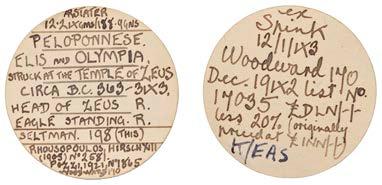 AR STATER
12·21XGMS/188·9GNS
PELOPONNESE.
ELIS AND OLYMPIA.
STRUCK AT THE TEMPLE OF ZEUS
CIRCA B.C. 363-
HEAD OF ZEUS R.
EAGLE STANDING. R.
SELTMAN. 198 (THIS)
P.RHOUSOPOULOS, HIRSCH XIII
(1905) No 2581.
POZZI, 1921, No 1865
ex
Spink
12/11/
Woodward 140
Dec. list No.
17035
less 20% (originally
priced at
K/EAS